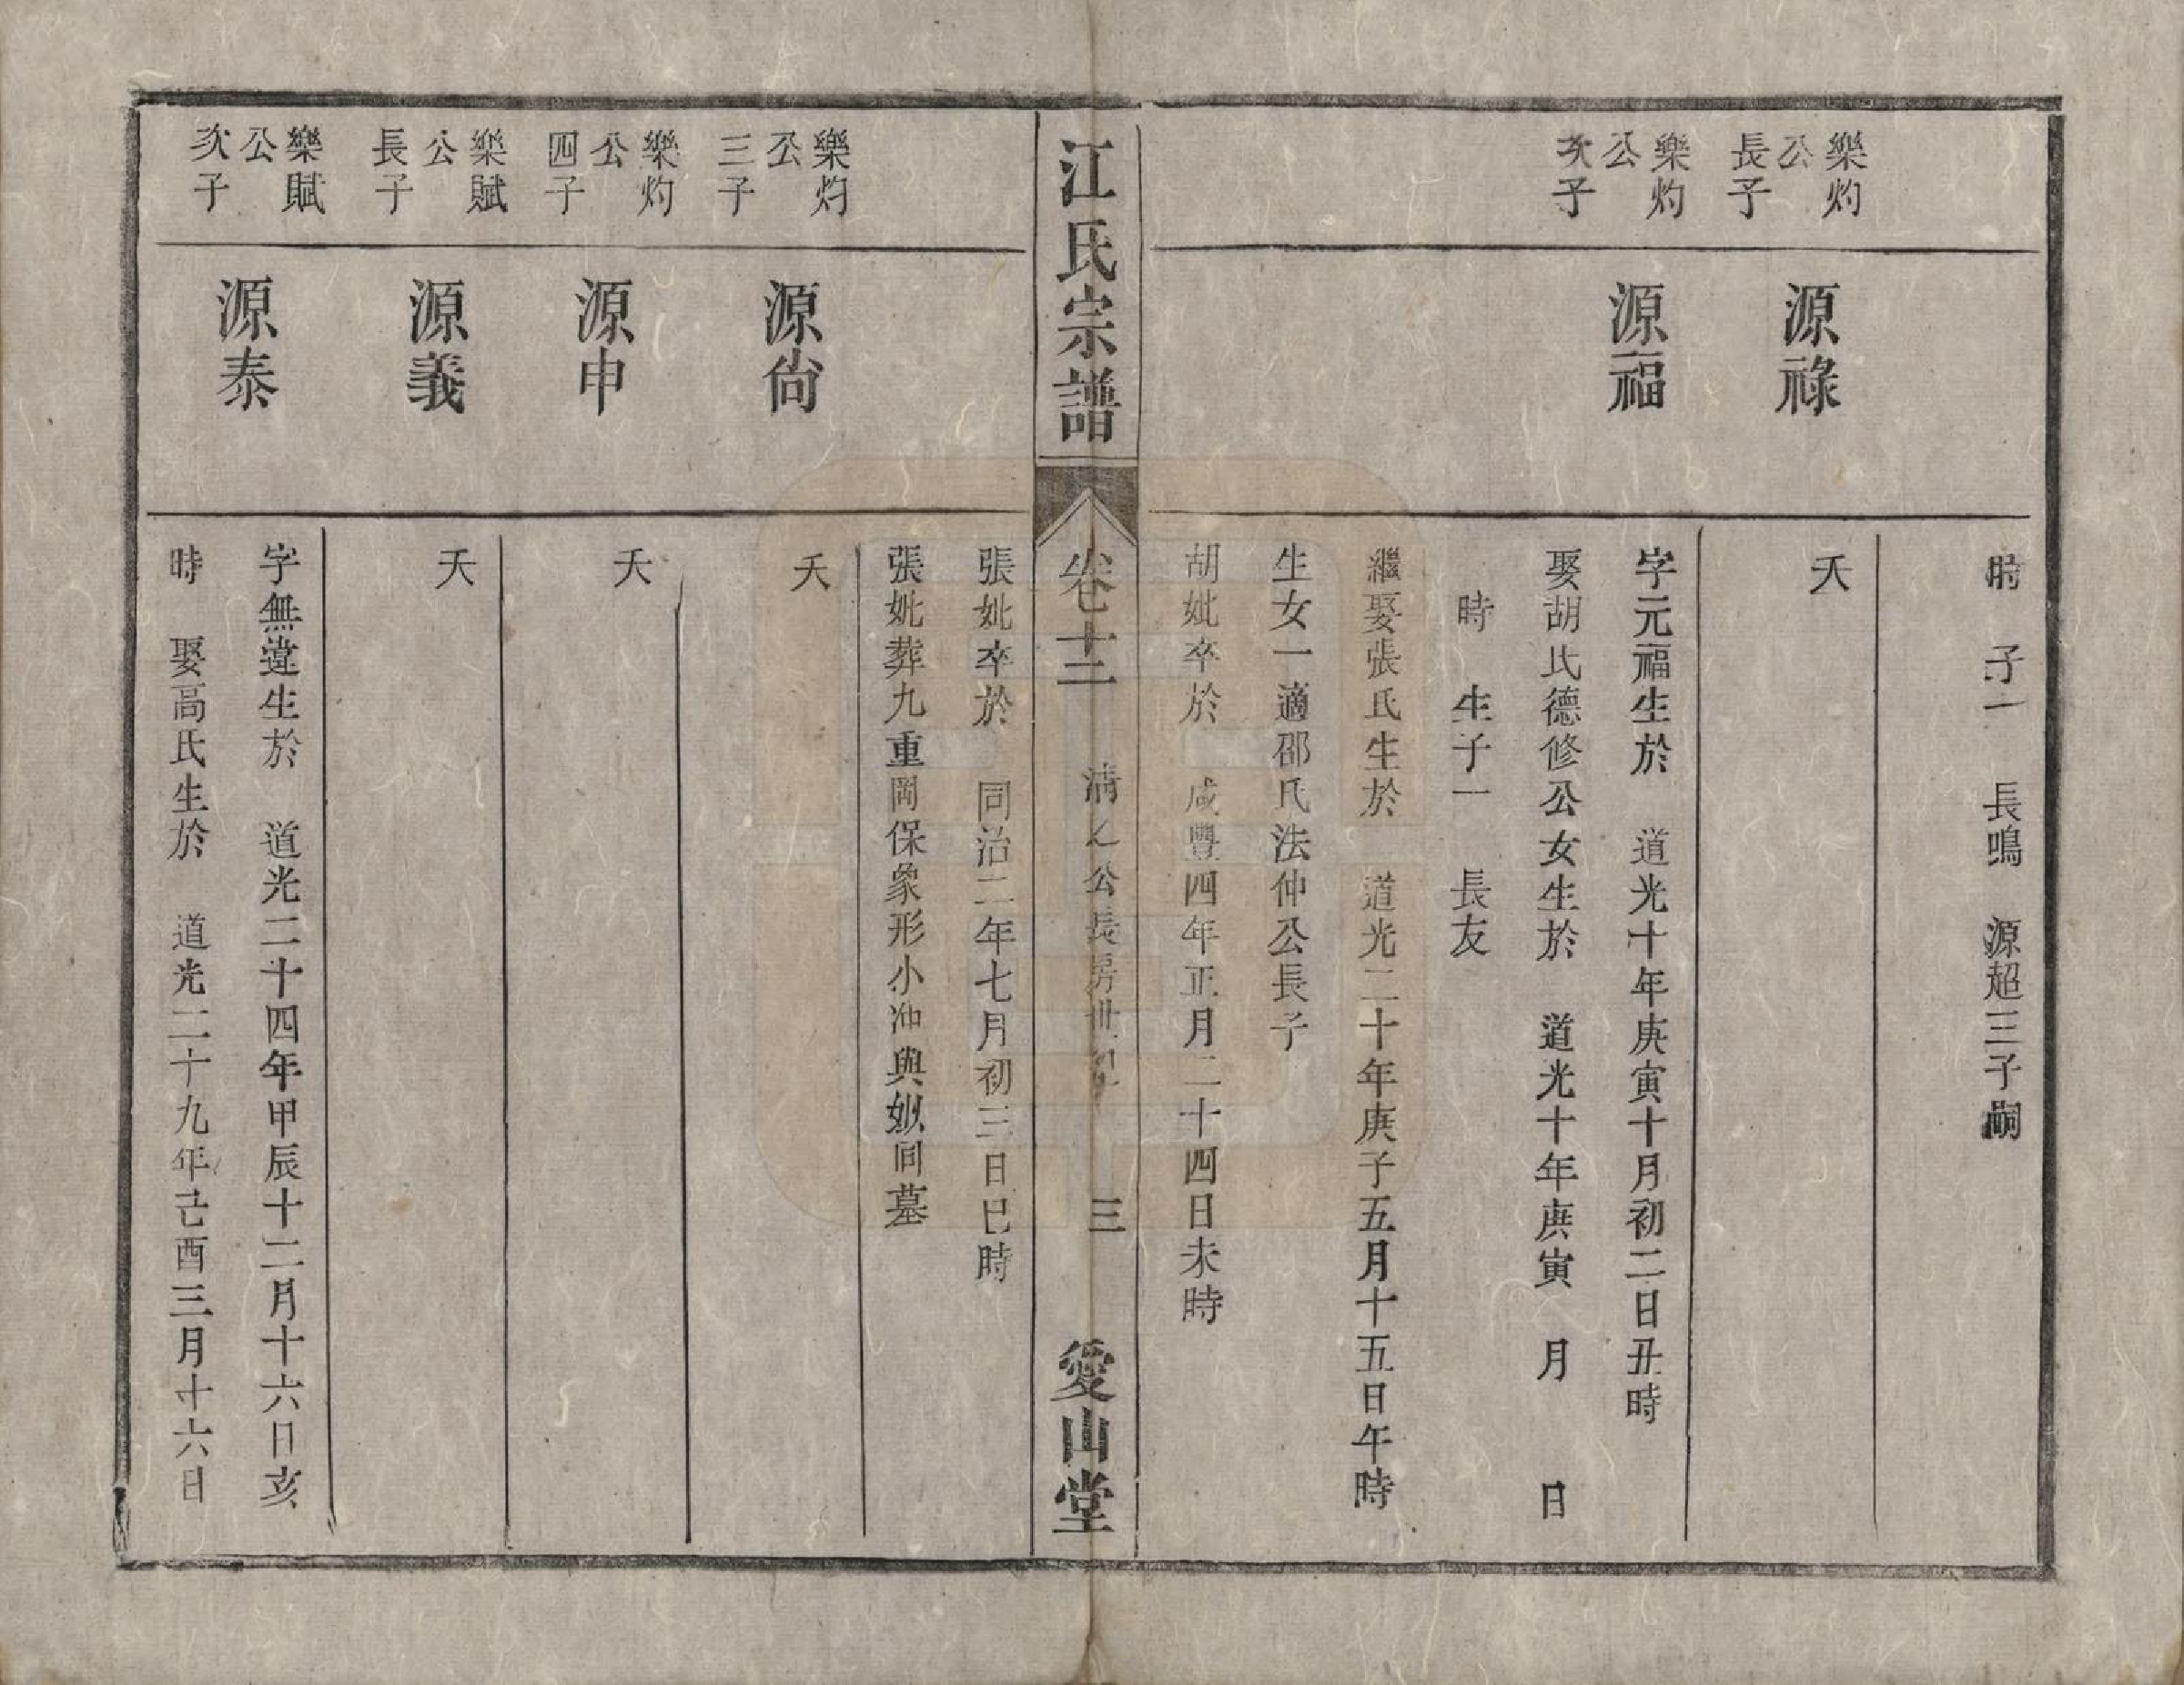 時　子一　長鳴　源超三子嗣
樂灼
公
長子
源祿
夭
樂灼
公
次子
源福
字元福生於　道光十年庚寅十月初二日丑時
娶胡氏德修公女生於　道光十年庚寅　月　日
時　生子一　長友
繼娶張氏生於　道光二十年庚子五月十五日午時
生女一適邵氏法仲公長子
胡妣卒於　咸豐四年正月二十四日未時
江氏宗譜
卷十二
清 公長房世
三
愛山堂
張妣卒於　同治二年七月初三日巳時
張妣葬九重岡保象形小冲與 同墓
樂灼
公
三子
源尙
夭
樂灼
公
四子
源申
夭
樂賦
公
長子
源義
夭
樂賦
公
次子
源泰
字無違生於　道光二十四年甲辰十二月十六日亥
時　娶高氏生於　道光二十九年己酉三月十六日